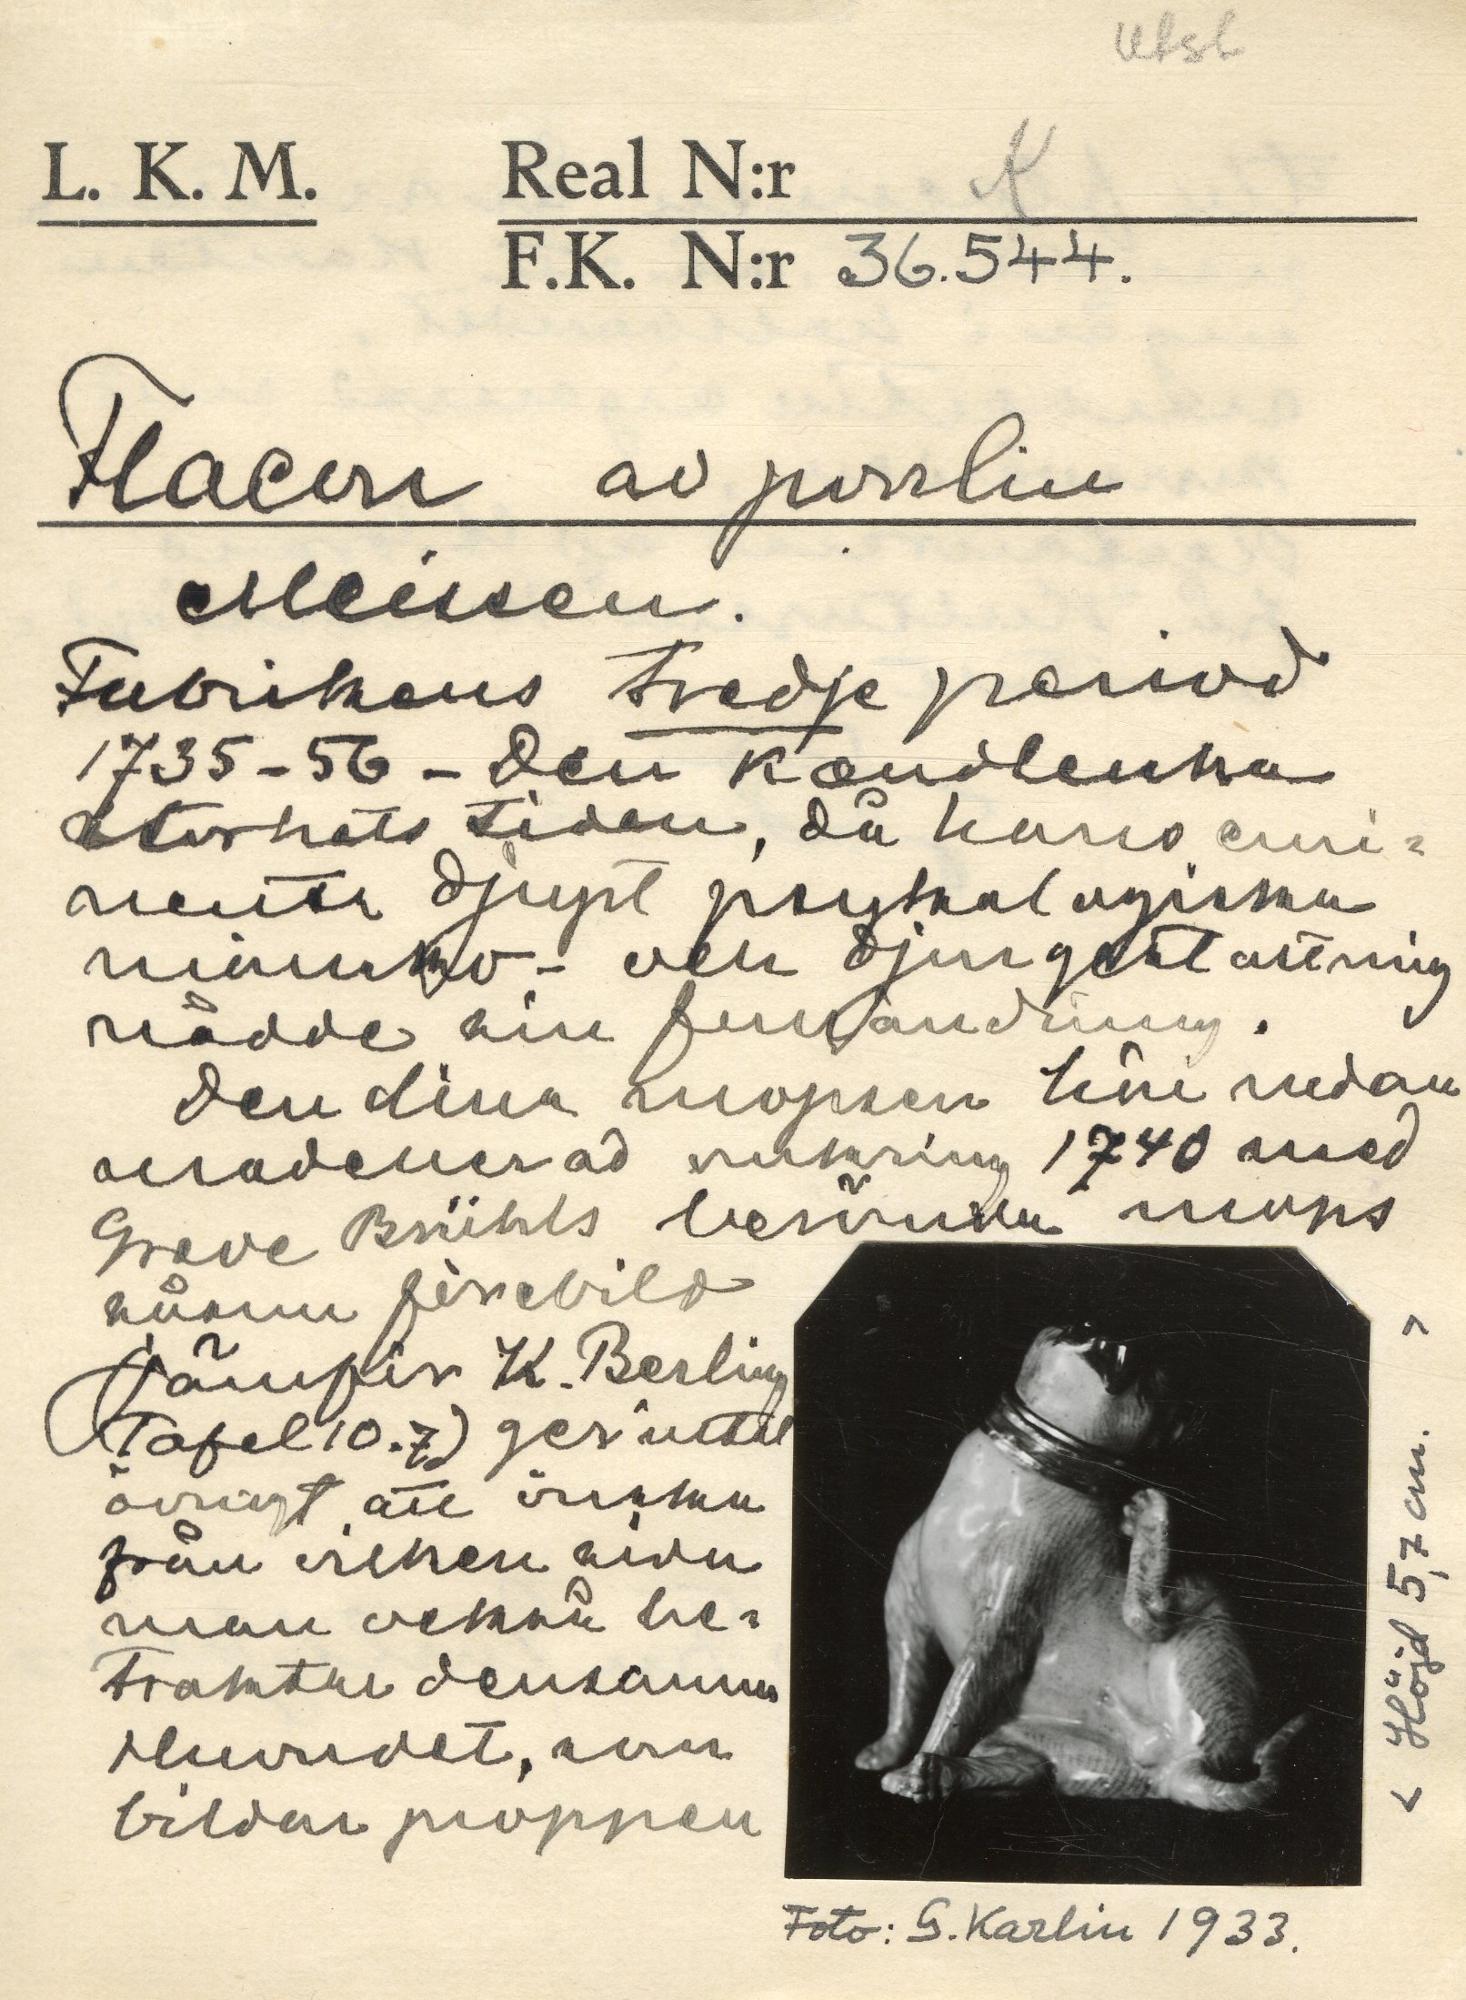 Utst
L. K. M. Real N:r K
F.K. N:r 36.544.
Flacon av porslin
Meissen.
Fabrikens tredje period
1735-56 - Den Kændlerska
storhets tiden, då hans emi-
nenta djupt psykologiska
människo- och djurgestaltning
nådde sin fulländning.
Den lilla mopsen här nedan
modellerad omkring 1740 med
Greve Brühls berömda mops
såsom förebild
(Jämför K. Berling
Tafel 10.7)
övrigt att önska
från vilken sida
man också be-
traktar densamma
Huvudet, som
bildar proppen
< Höjd 5,7 cm. >
Foto: G. Karlin 1933.